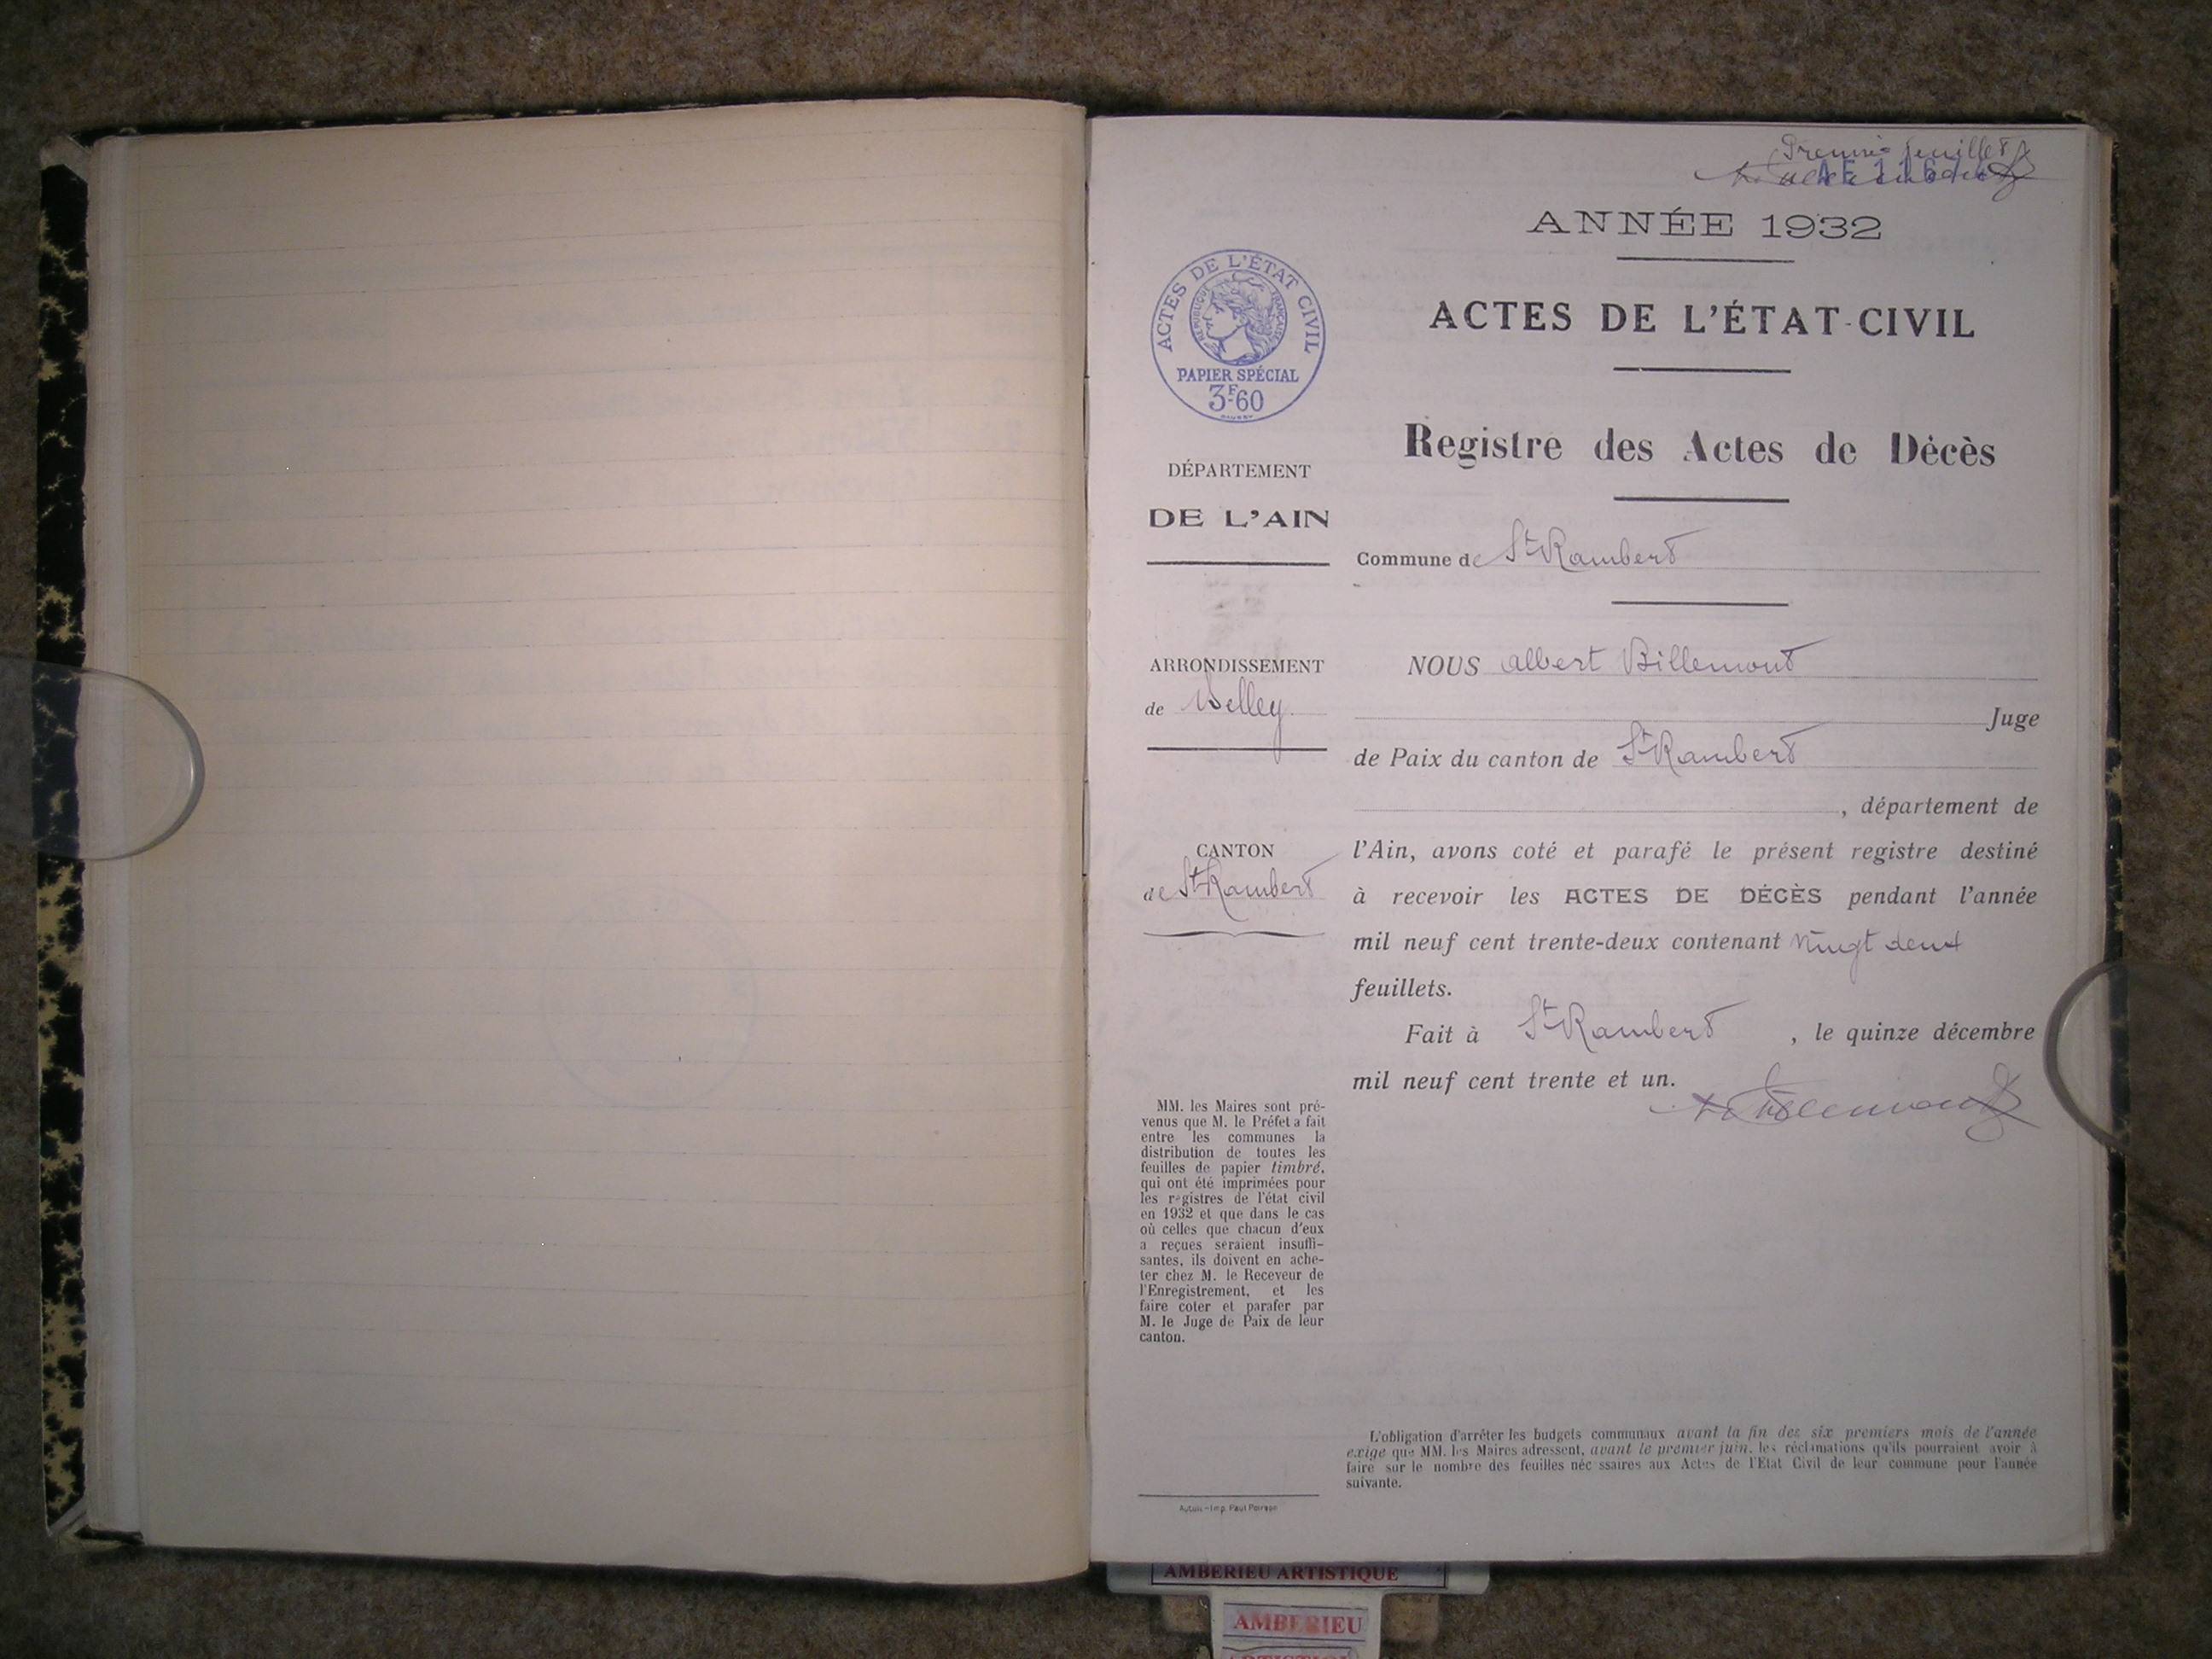 Premier feuillet
ANNÉE 1932
ACTES DE L'ÉTAT CIVIL
RÉPUBLIQUE FRANÇAISE
PAPIER SPÉCIAL
3F60
ACTES DE L'ÉTAT-CIVIL
Registre des Actes de Décès
DÉPARTEMENT
DE L'AIN
Commune de St Rambert
ARRONDISSEMENT
de Belley
CANTON
de St Rambert
NOUS Albert Billemont
Juge
de Paix du canton de St Rambert
, département de
l'Ain, avons coté et parafé le présent registre destiné
à recevoir les ACTES DE DÉCÈS pendant l'année
mil neuf cent trente-deux contenant vingt deux
feuillets.
Fait à St Rambert , le quinze décembre
mil neuf cent trente et un.
MM. les Maires sont pré-
venus que M. le Préfet a fait
entre les communes la
distribution de toutes les
feuilles de papier timbré,
qui ont été imprimées pour
les registres de l'état civil
en 1932 et que dans le cas
où celles que chacun d'eux
a reçues seraient insuffi-
santes, ils doivent en ache-
ter chez M. le Receveur de
l'Enregistrement, et les
faire coter et parafer par
M. le Juge de Paix de leur
canton.
L'obligation d'arrêter les budgets communaux avant la fin des six premiers mois de l'année
exige que MM. les Maires adressent, avant le premier juin, les réclamations qu'ils pourraient avoir à
faire sur le nombre des feuilles néc ssaires aux Actes de l'Etat Civil de leur commune pour l'année
suivante.
Autun - Imp. Paul Poirson
AMBERIEU ARTISTIQUE
AMBERIEU